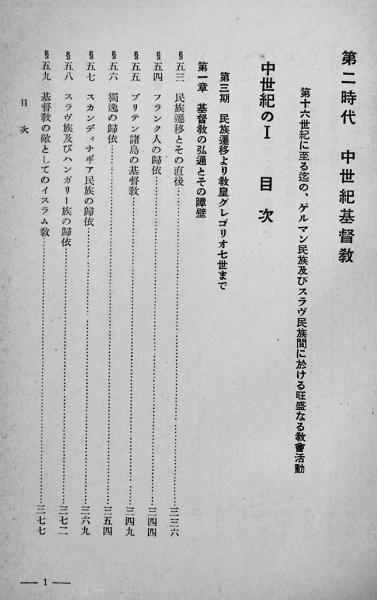 第二時代　中世紀基督教
第十六世紀に至る迄の、ゲルマン民族及びスラヴ民族間に於ける旺盛なる教會活動
中世紀のⅠ　目次
第三期　民族遷移より教皇グレゴリオ七世まで
第一章　基督教の弘通とその障壁
§五三　民族遷移とその直後…………三三六
§五四　フランク人の歸依…………三四四
§五五　ブリテン諸島の基督教…………三四九
§五六　獨逸の歸依…………三五四
§五七　スカンディナボア民族の歸依…………三六九
§五八　スラヴ族及びハンガリー族の歸依…………三七二
§五九　基督教の敵としてのイスラム教…………三七七
目次
— 1 —